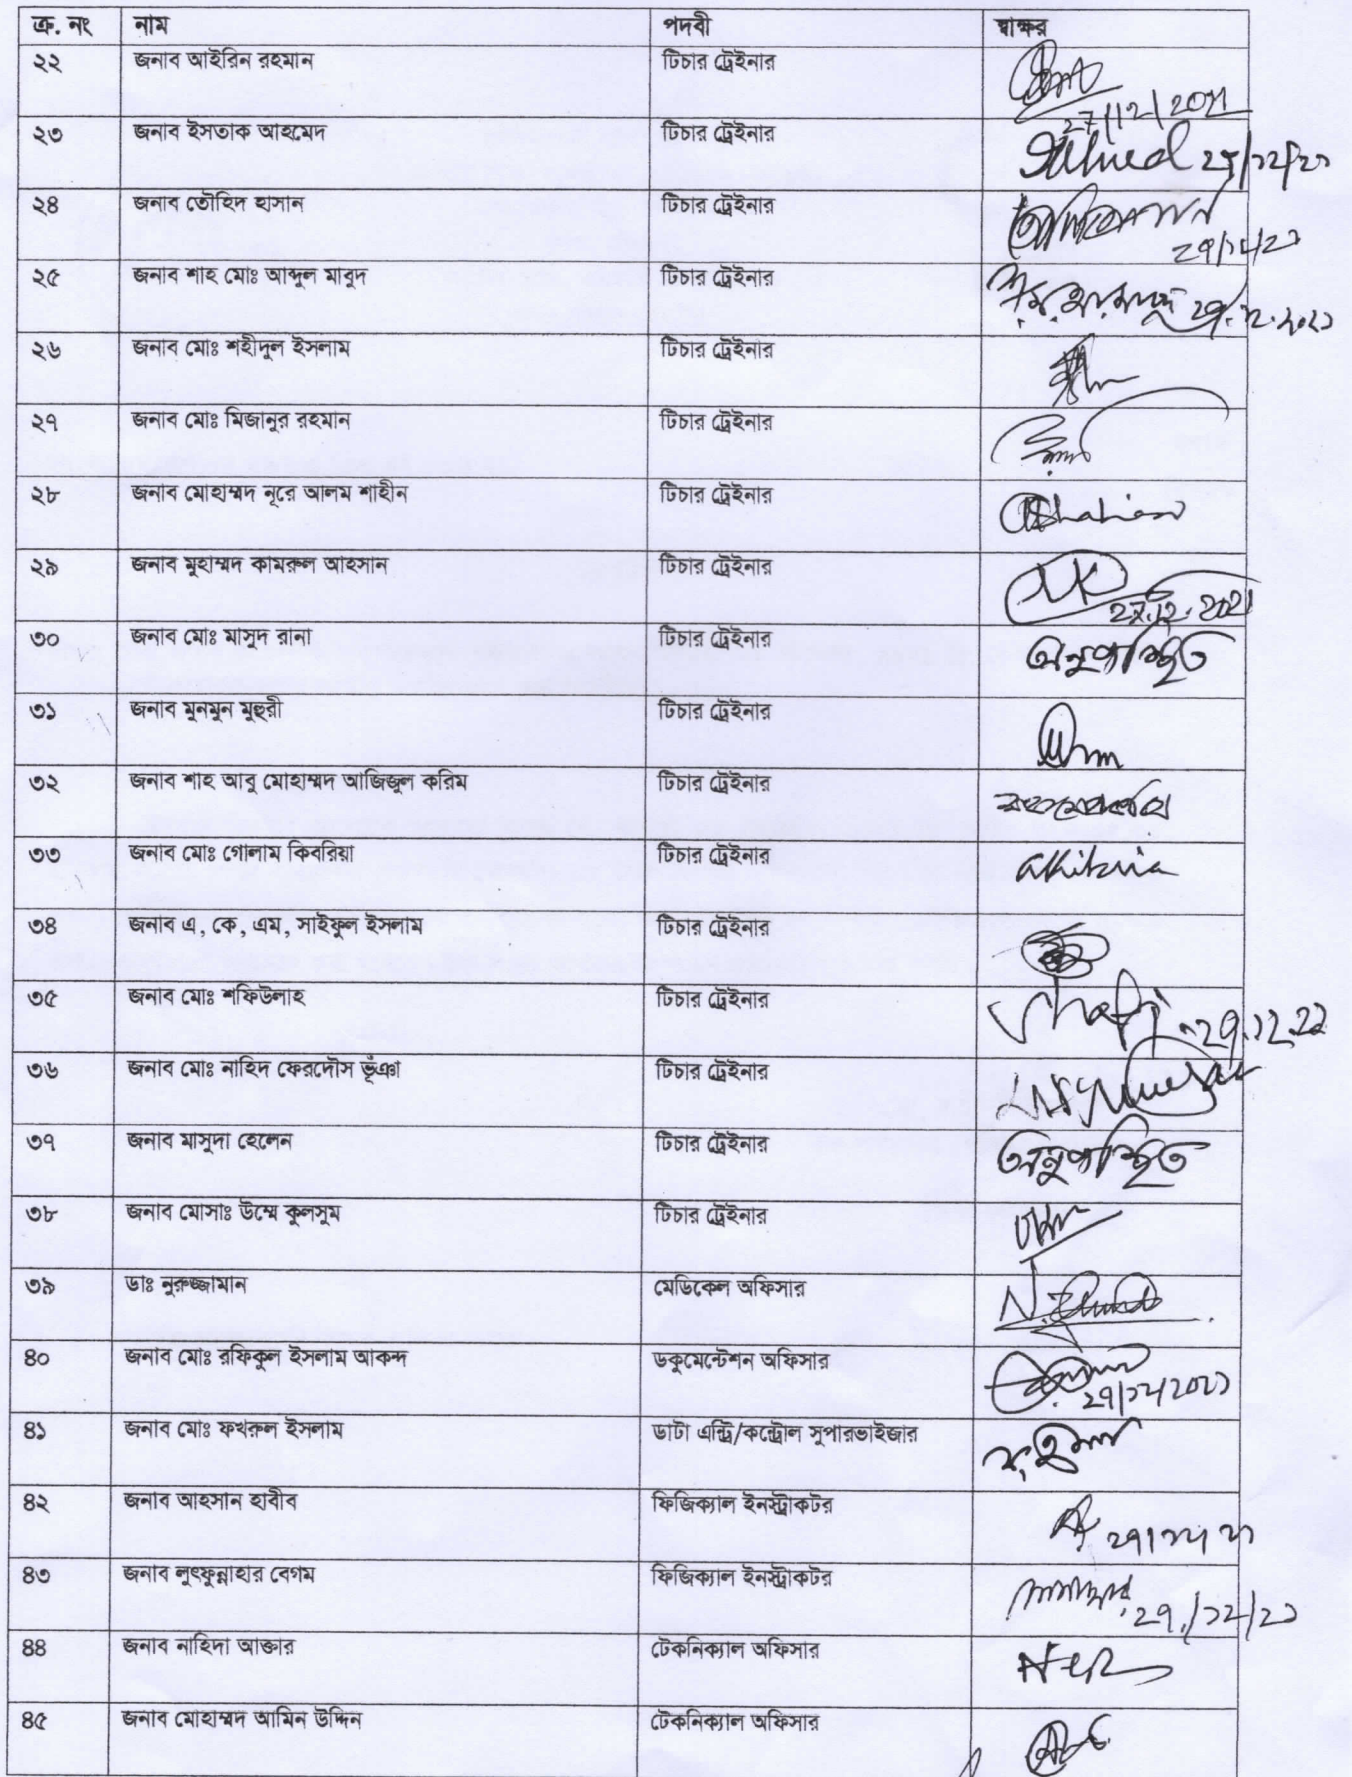 ক্র. নং নাম পদবী স্বাক্ষর
২২ জনাব আইরিন রহমান টিচার ট্রেইনার
27/12/2021
২৩ জনাব ইসতাক আহমেদ টিচার ট্রেইনার Ahmed ২৭/১২/২১
২৪ জনাব তৌহিদ হাসান টিচার ট্রেইনার
২৭/১২/২১
২৫ জনাব শাহ মোঃ আব্দুল মাবুদ টিচার ট্রেইনার ২৭.১২.২০২১
২৬ জনাব মোঃ শহীদুল ইসলাম টিচার ট্রেইনার
২৭ জনাব মোঃ মিজানুর রহমান টিচার ট্রেইনার
২৮ জনাব মোহাম্মদ নূরে আলম শাহীন টিচার ট্রেইনার
২৯ জনাব মুহাম্মদ কামরুল আহসান টিচার ট্রেইনার
27.12.2021
৩০ জনাব মোঃ মাসুদ রানা টিচার ট্রেইনার অনুপস্থিত
৩১ জনাব মুনমুন মুহুরী টিচার ট্রেইনার
৩২ জনাব শাহ আবু মোহাম্মদ আজিজুল করিম টিচার ট্রেইনার
৩৩ জনাব মোঃ গোলাম কিবরিয়া টিচার ট্রেইনার
৩৪ জনাব এ, কে, এম, সাইফুল ইসলাম টিচার ট্রেইনার
৩৫ জনাব মোঃ শফিউলাহ টিচার ট্রেইনার
৩৬ জনাব মোঃ নাহিদ ফেরদৌস ভূঁঞা টিচার ট্রেইনার
৩৭ জনাব মাসুদা হেলেন টিচার ট্রেইনার অনুপস্থিত
৩৮ জনাব মোসাঃ উম্মে কুলসুম টিচার ট্রেইনার
৩৯ ডাঃ নুরুজ্জামান মেডিকেল অফিসার
৪০ জনাব মোঃ রফিকুল ইসলাম আকন্দ ডকুমেন্টেশন অফিসার
২৭/১২/২০২১
৪১ জনাব মোঃ ফখরুল ইসলাম ডাটা এন্ট্রি/কন্ট্রোল সুপারভাইজার
৪২ জনাব আহসান হাবীব ফিজিক্যাল ইনস্ট্রাকটর ২৭/১২/২১
৪৩ জনাব লুৎফুন্নাহার বেগম ফিজিক্যাল ইনস্ট্রাকটর ২৭/১২/২১
৪৪ জনাব নাহিদা আক্তার টেকনিক্যাল অফিসার
৪৫ জনাব মোহাম্মদ আমিন উদ্দিন টেকনিক্যাল অফিসার